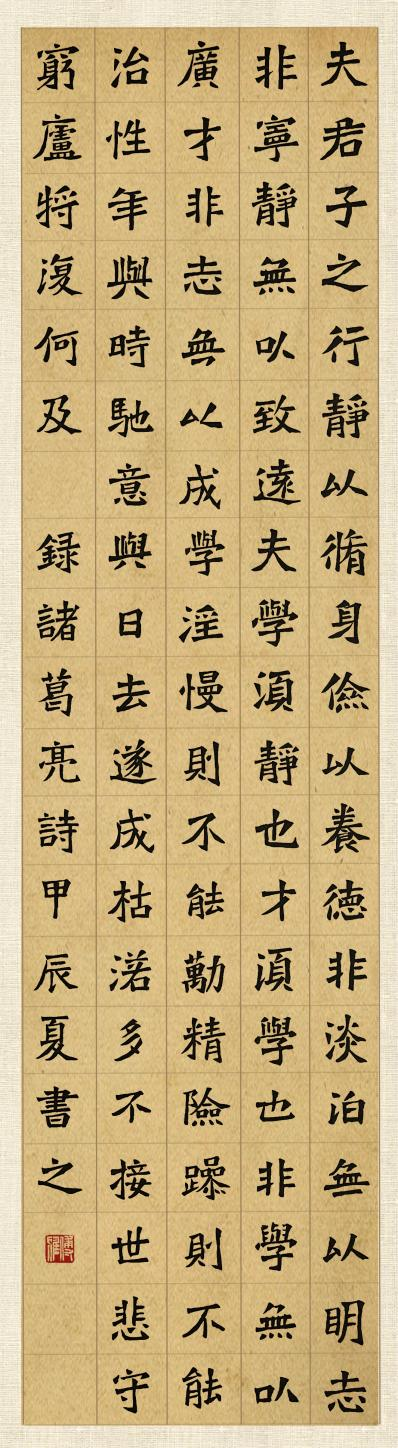 夫君子之行靜以脩身儉以養德非淡泊無以明志
非寧靜無以致遠夫學須靜也才須學也非學無以
廣才非志無以成學淫慢則不能勱精險躁則不能
治性年與時馳意與日去遂成枯落多不接世悲守
窮廬將復何及 録諸葛亮詩甲辰夏書之